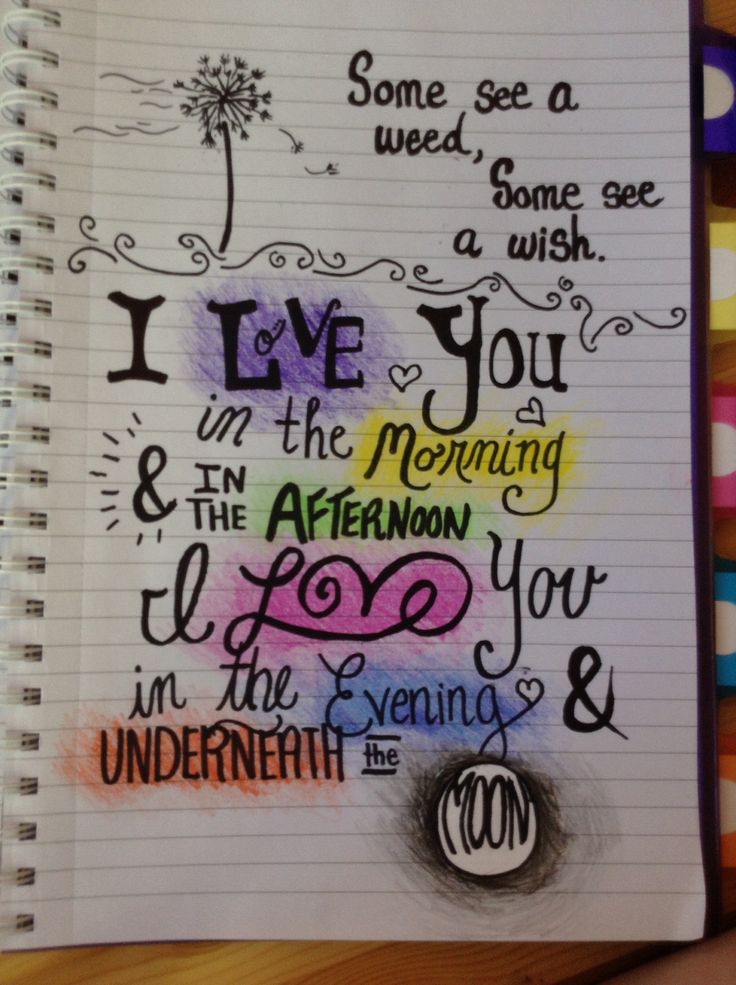 Some see a
weed,
Some see
a wish.
I LOVE YOU
in the Morning
& IN
THE AFTERNOON
I LOVE You
in the Evening &
UNDERNEATH the
MOON